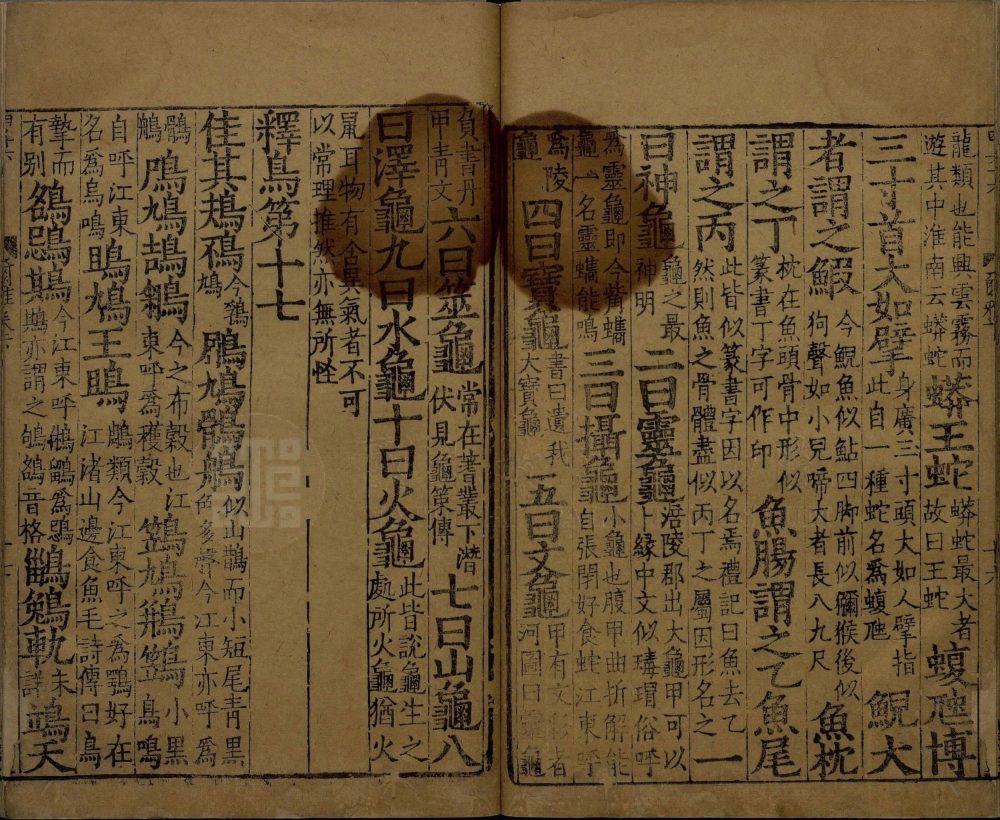 龍類也能興雲霧而遊其中淮南云蟒蛇蟒王蛇蟒蛇最大者故曰王蛇蝮虺博
三寸首大如擘身廣三寸頭大如人擘指此自一種蛇名為蝮虺鯢大
者謂之鰕今鯢魚似鮎四脚前似獼猴後似狗聲如小兒啼大者長八九尺魚枕
謂之丁枕在魚頭骨中形似篆書丁字可作印魚腸謂之乙魚尾
謂之丙此皆似篆書字因以名焉禮記曰魚去乙然則魚之骨體盡似丙丁之屬因形名之一
曰神龜龜之最神明二曰靈龜涪陵郡出大龜甲可以卜緣中文似瑇瑁俗呼
為靈龜即今觜蠵龜一名靈蠵能鳴三曰攝龜小龜也腹甲曲折解能自張閉好食蛇江東呼
為陵龜四曰寶龜書曰遺我大寶龜五曰文龜甲有文彩者河圖曰靈龜
負書丹甲青文六曰筮龜常在蓍叢下潛伏見龜策傳七曰山龜八
曰澤龜九曰水龜十曰火龜此皆說龜生之處所火龜猶火
鼠耳物有含異氣者不可以常理推然亦無所怪
釋鳥第十七
隹其鳺鴀今䳕鳩鶌鳩鶻鵃似山鵲而小短尾青黑色多聲今江東亦呼為
鶻鵃鳲鳩鴶鵴今之布穀也江東呼為穫穀鷑鳩鵧鷑小黑鳥鳴
自呼江東名為烏鳴鴡鳩王鴡鵰類今江東呼之為鶚好在江渚山邊食魚毛詩傳曰鳥
摯而有別鵅鵋䳢今江東呼鵂鶹為鵋䳢亦謂之鴝鵅音格鶅鵵軌未詳鴗天